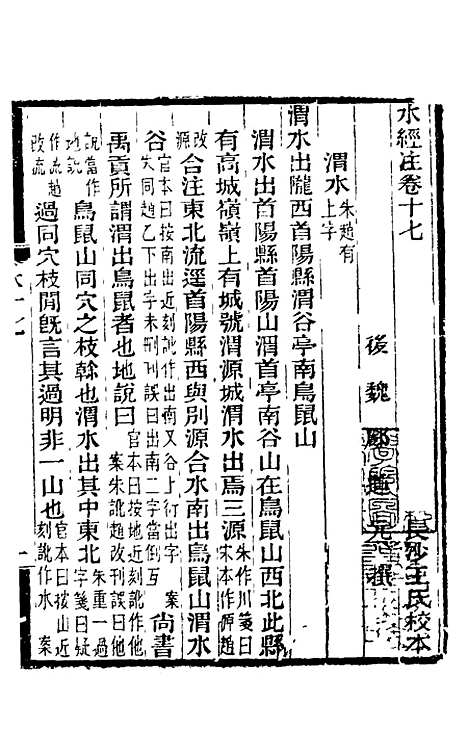 水經注卷十七
後魏酈道元撰
長沙王氏校本
渭水朱趙有上字
渭水出隴西首陽縣渭谷亭南鳥鼠山
渭水出首陽縣首陽山渭首亭南谷山在鳥鼠山西北此縣
有高城嶺嶺上有城號渭源城渭水出焉三源朱作川箋曰宋本作源趙
改源合注東北流逕首陽縣西與別源合水南出鳥鼠山渭水
谷官本曰按南出近刻訛作出南又谷上衍出字案朱同趙乙下出字未刪刊誤曰出南二字當倒互尚書
禹貢所謂渭出鳥鼠者也地說曰官本曰按地近刻訛作他案朱訛趙改刊誤曰他
說當作地說鳥鼠山同穴之枝榦也渭水出其中東北朱重一過字箋曰疑
作流趙改流過同穴枝間旣言其過明非一山也官本曰按山近刻訛作水案